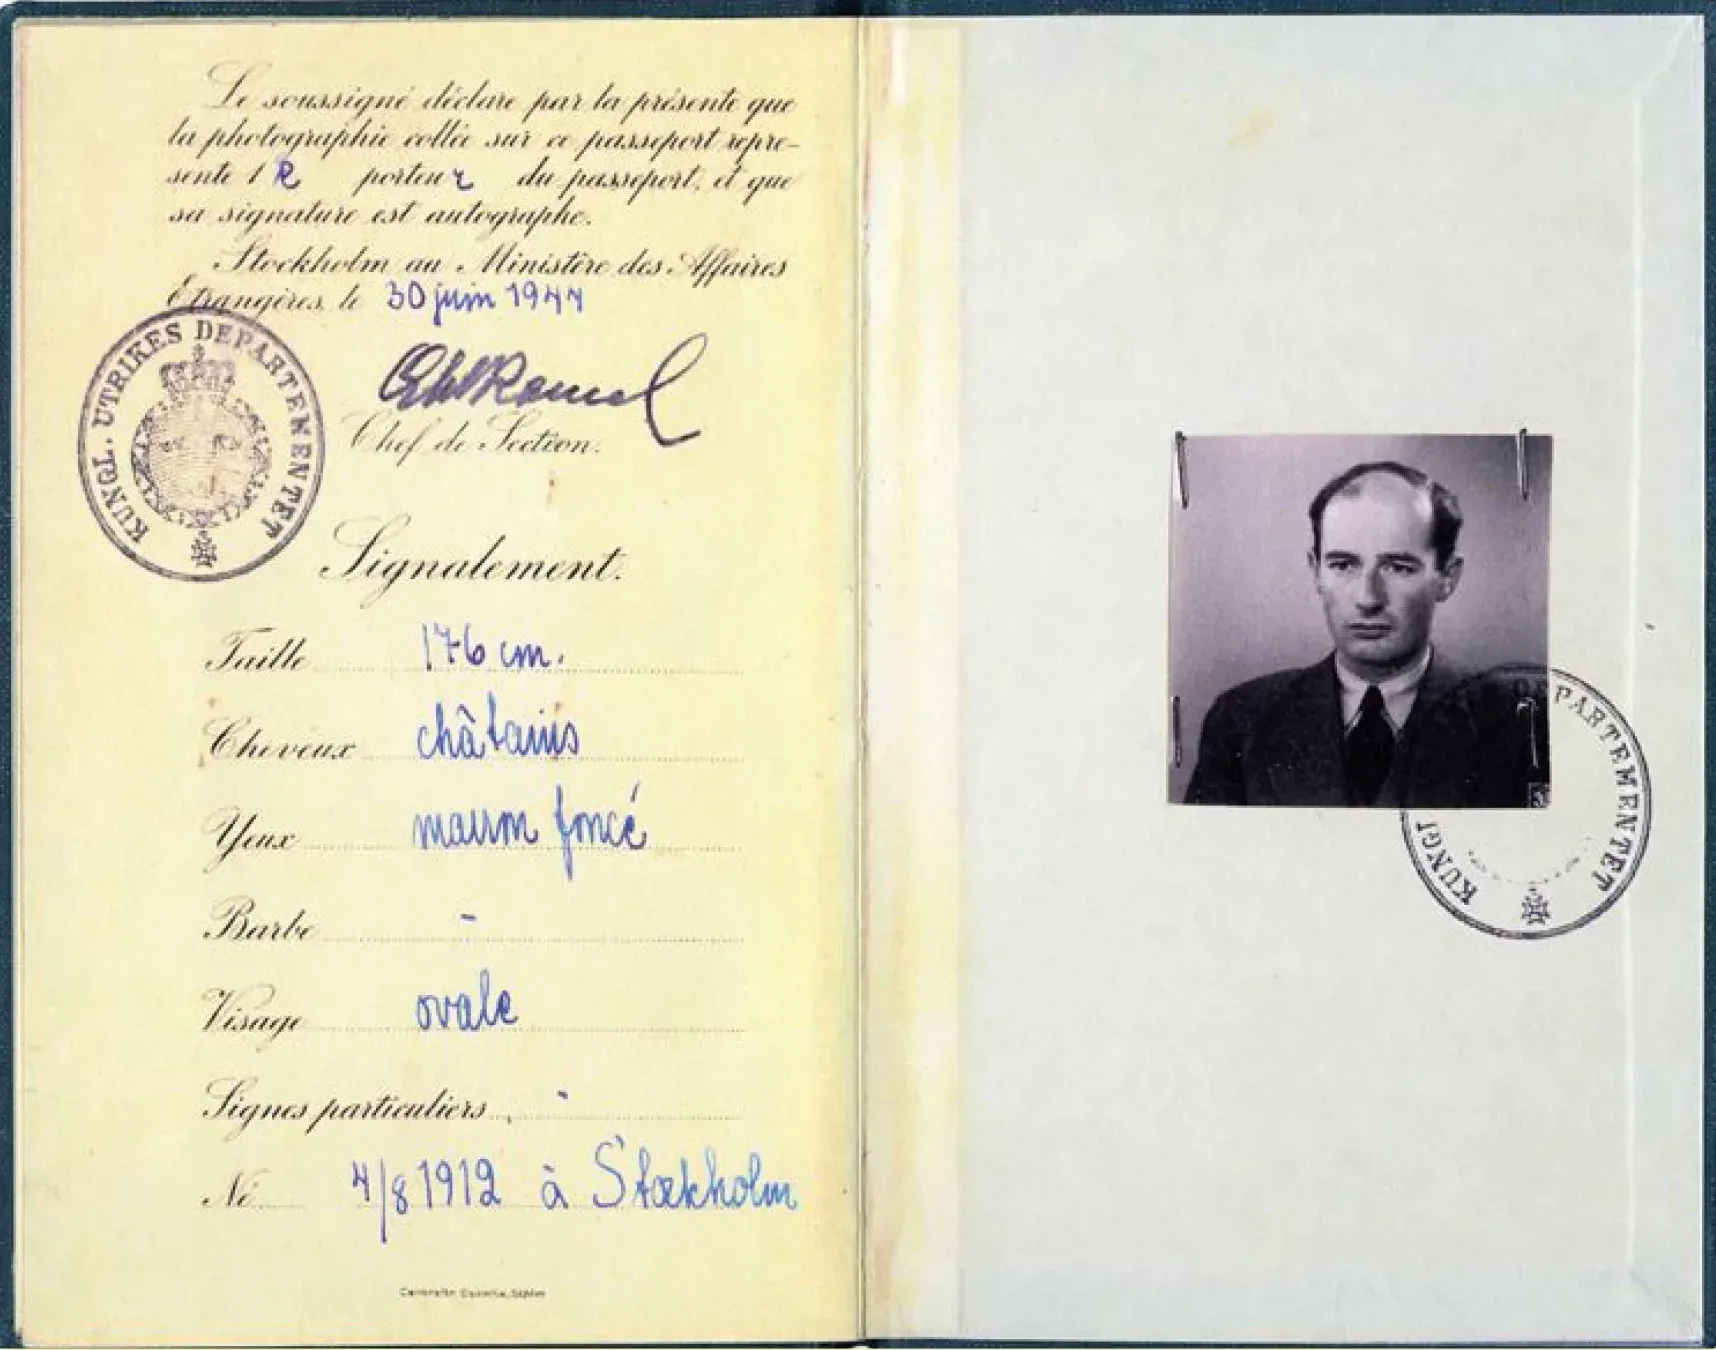 Le soussigné déclare par la présente que
la photographie collée sur ce passeport repré-
sente le porteur du passeport, et que
sa signature est autographe.
Stockholm au Ministère des Affaires
Étrangères, le 30 juin 1944
KUNGL. UTRIKES DEPARTEMENTET
Chef de Section.
Signalement.
Taille 176 cm.
Cheveux châtains
Yeux marron foncé
Barbe -
Visage ovale
Signes particuliers -
Né 4/8 1912 à Stockholm
KUNGL DEPARTEMENTET